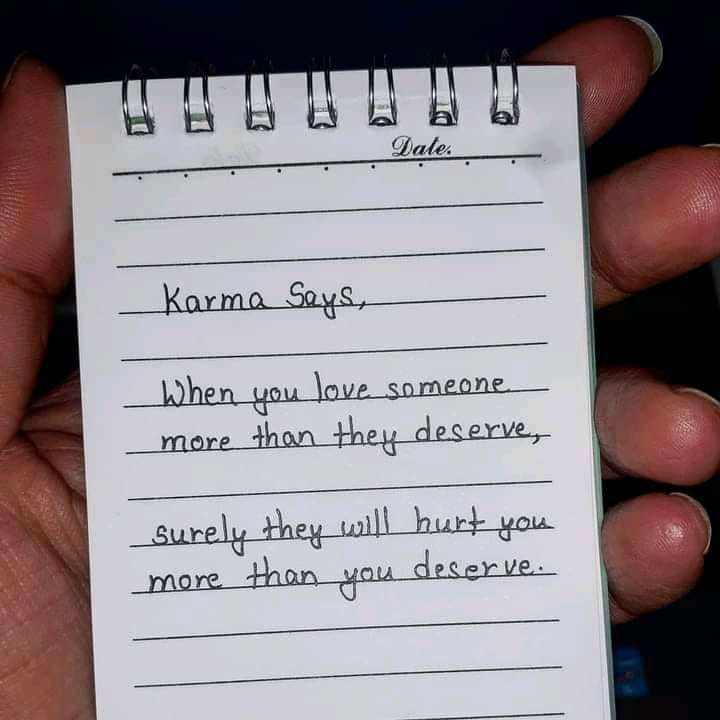 Date.
Karma Says,
When you love someone
more than they deserve,
surely they will hurt you
more than you deserve.